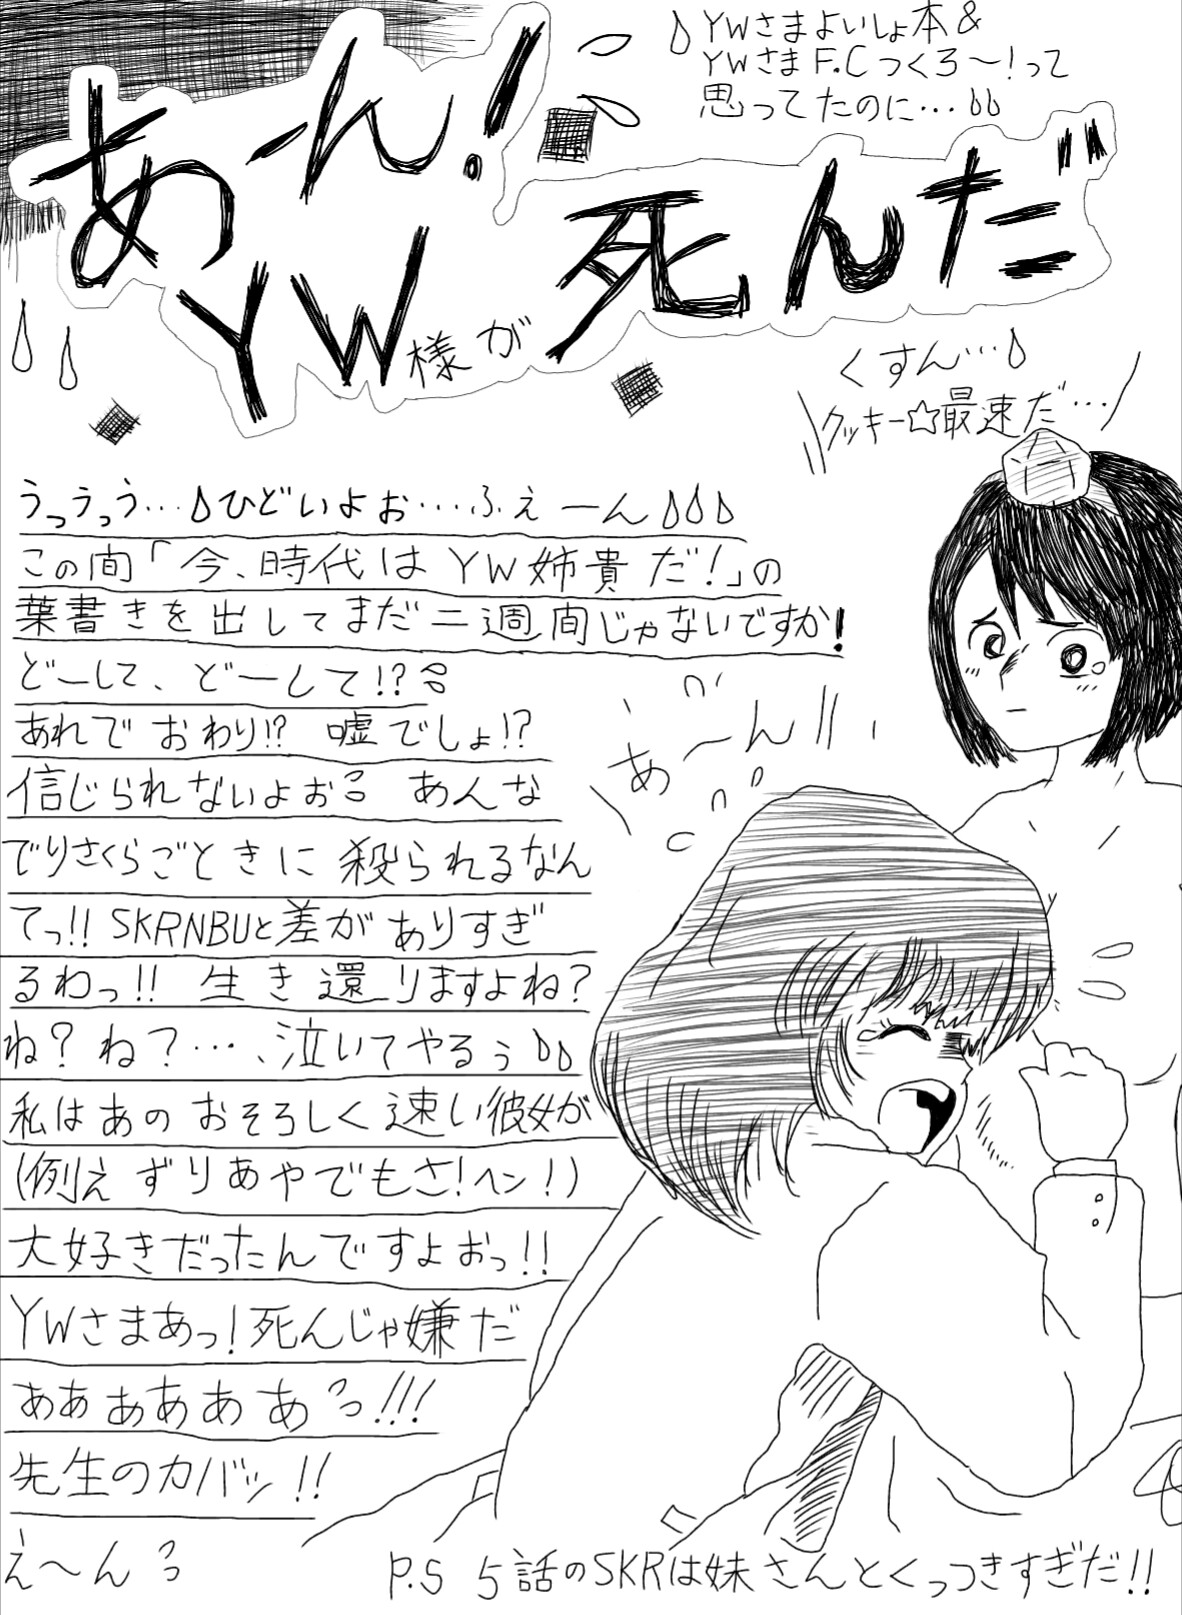 YWさまよいしょ本&
YWさまF.Cつくろ〜!って
思ってたのに…
あーん!
YW様が死んだ
くすん…
クッキー☆最速だ…
うっうっう…ひどいよお…ふぇーん
この間「今、時代はYW姉貴だ!」の
葉書きを出してまだ二週間じゃないですか!
どーして、どーして!?
あれでおわり!?嘘でしょ!?
信じられないよおっ あんな
でりさくらごときに殺られるなん
てっ!!SKRNBUと差がありすぎ
るわっ!!生き還りますよね?
ね?ね?…、泣いてやるぅ
私はあのおそろしく速い彼女が
(例えずりあやでもさ!ヘン!)
大好きだったんですよおっ!!
YWさまあっ!死んじゃ嫌だ
ぁあぁあああっ!!!
先生のカバッ!!
え〜んっ
あーん
P.S 5話のSKRは妹さんとくっつきすぎだ!!